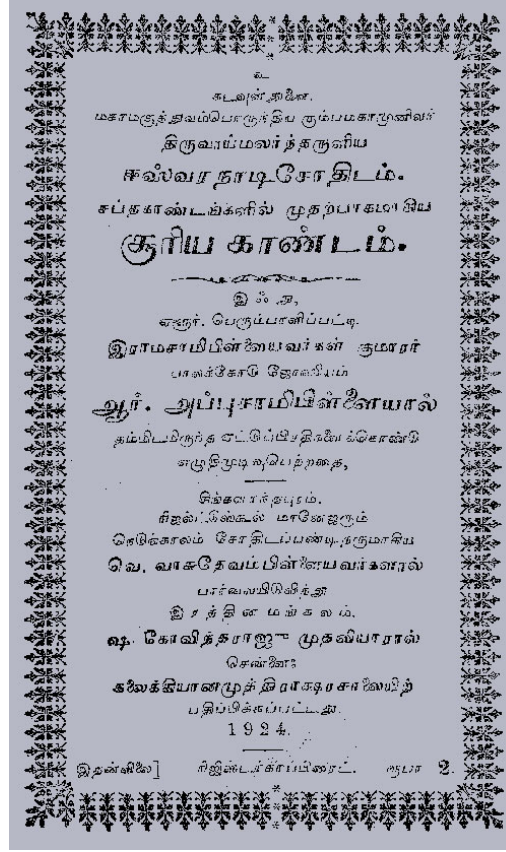 உ
கடவுள் துணை.
மகாமகத்துவம்பொருந்திய ரோமமகாமுனிவர்
திருவாய்மலர்ந்தருளிய
ஈஸ்வர நாடிசோதிடம்.
சப்தகாண்டங்களில் முதற்பாகமாகிய
சூரிய காண்டம்.
இஃது,
பெரும்பாளிப்பட்டி.
இராமசாமிபிள்ளையவர்கள் குமாரர்
பாலர்கோடு ஜோஸியம்
ஆர். அப்புசாமிபிள்ளையால்
தம்மிடமிருந்த ஏட்டுப்பிரதிகளைக்கொண்டு
எழுதிமுடிவுபெற்றதை,
மானேஜரும்
நெடுங்காலம் சோதிடப்பண்டிதருமாகிய
வெ. வாசுதேவம்பிள்ளையவர்களால்
பார்வையிடுவித்து
இரத்தினமங்கலம்.
ஷ. கோவிந்தராஜு முதலியாரால்
சென்னை:
கலைக்கியானமுத்திராக்ஷரசாலையிற்
பதிப்பிக்கப்பட்டது.
1924.
இதன்விலை] ரிஜிஸ்டர்காப்பிரைட். ரூபா 2.